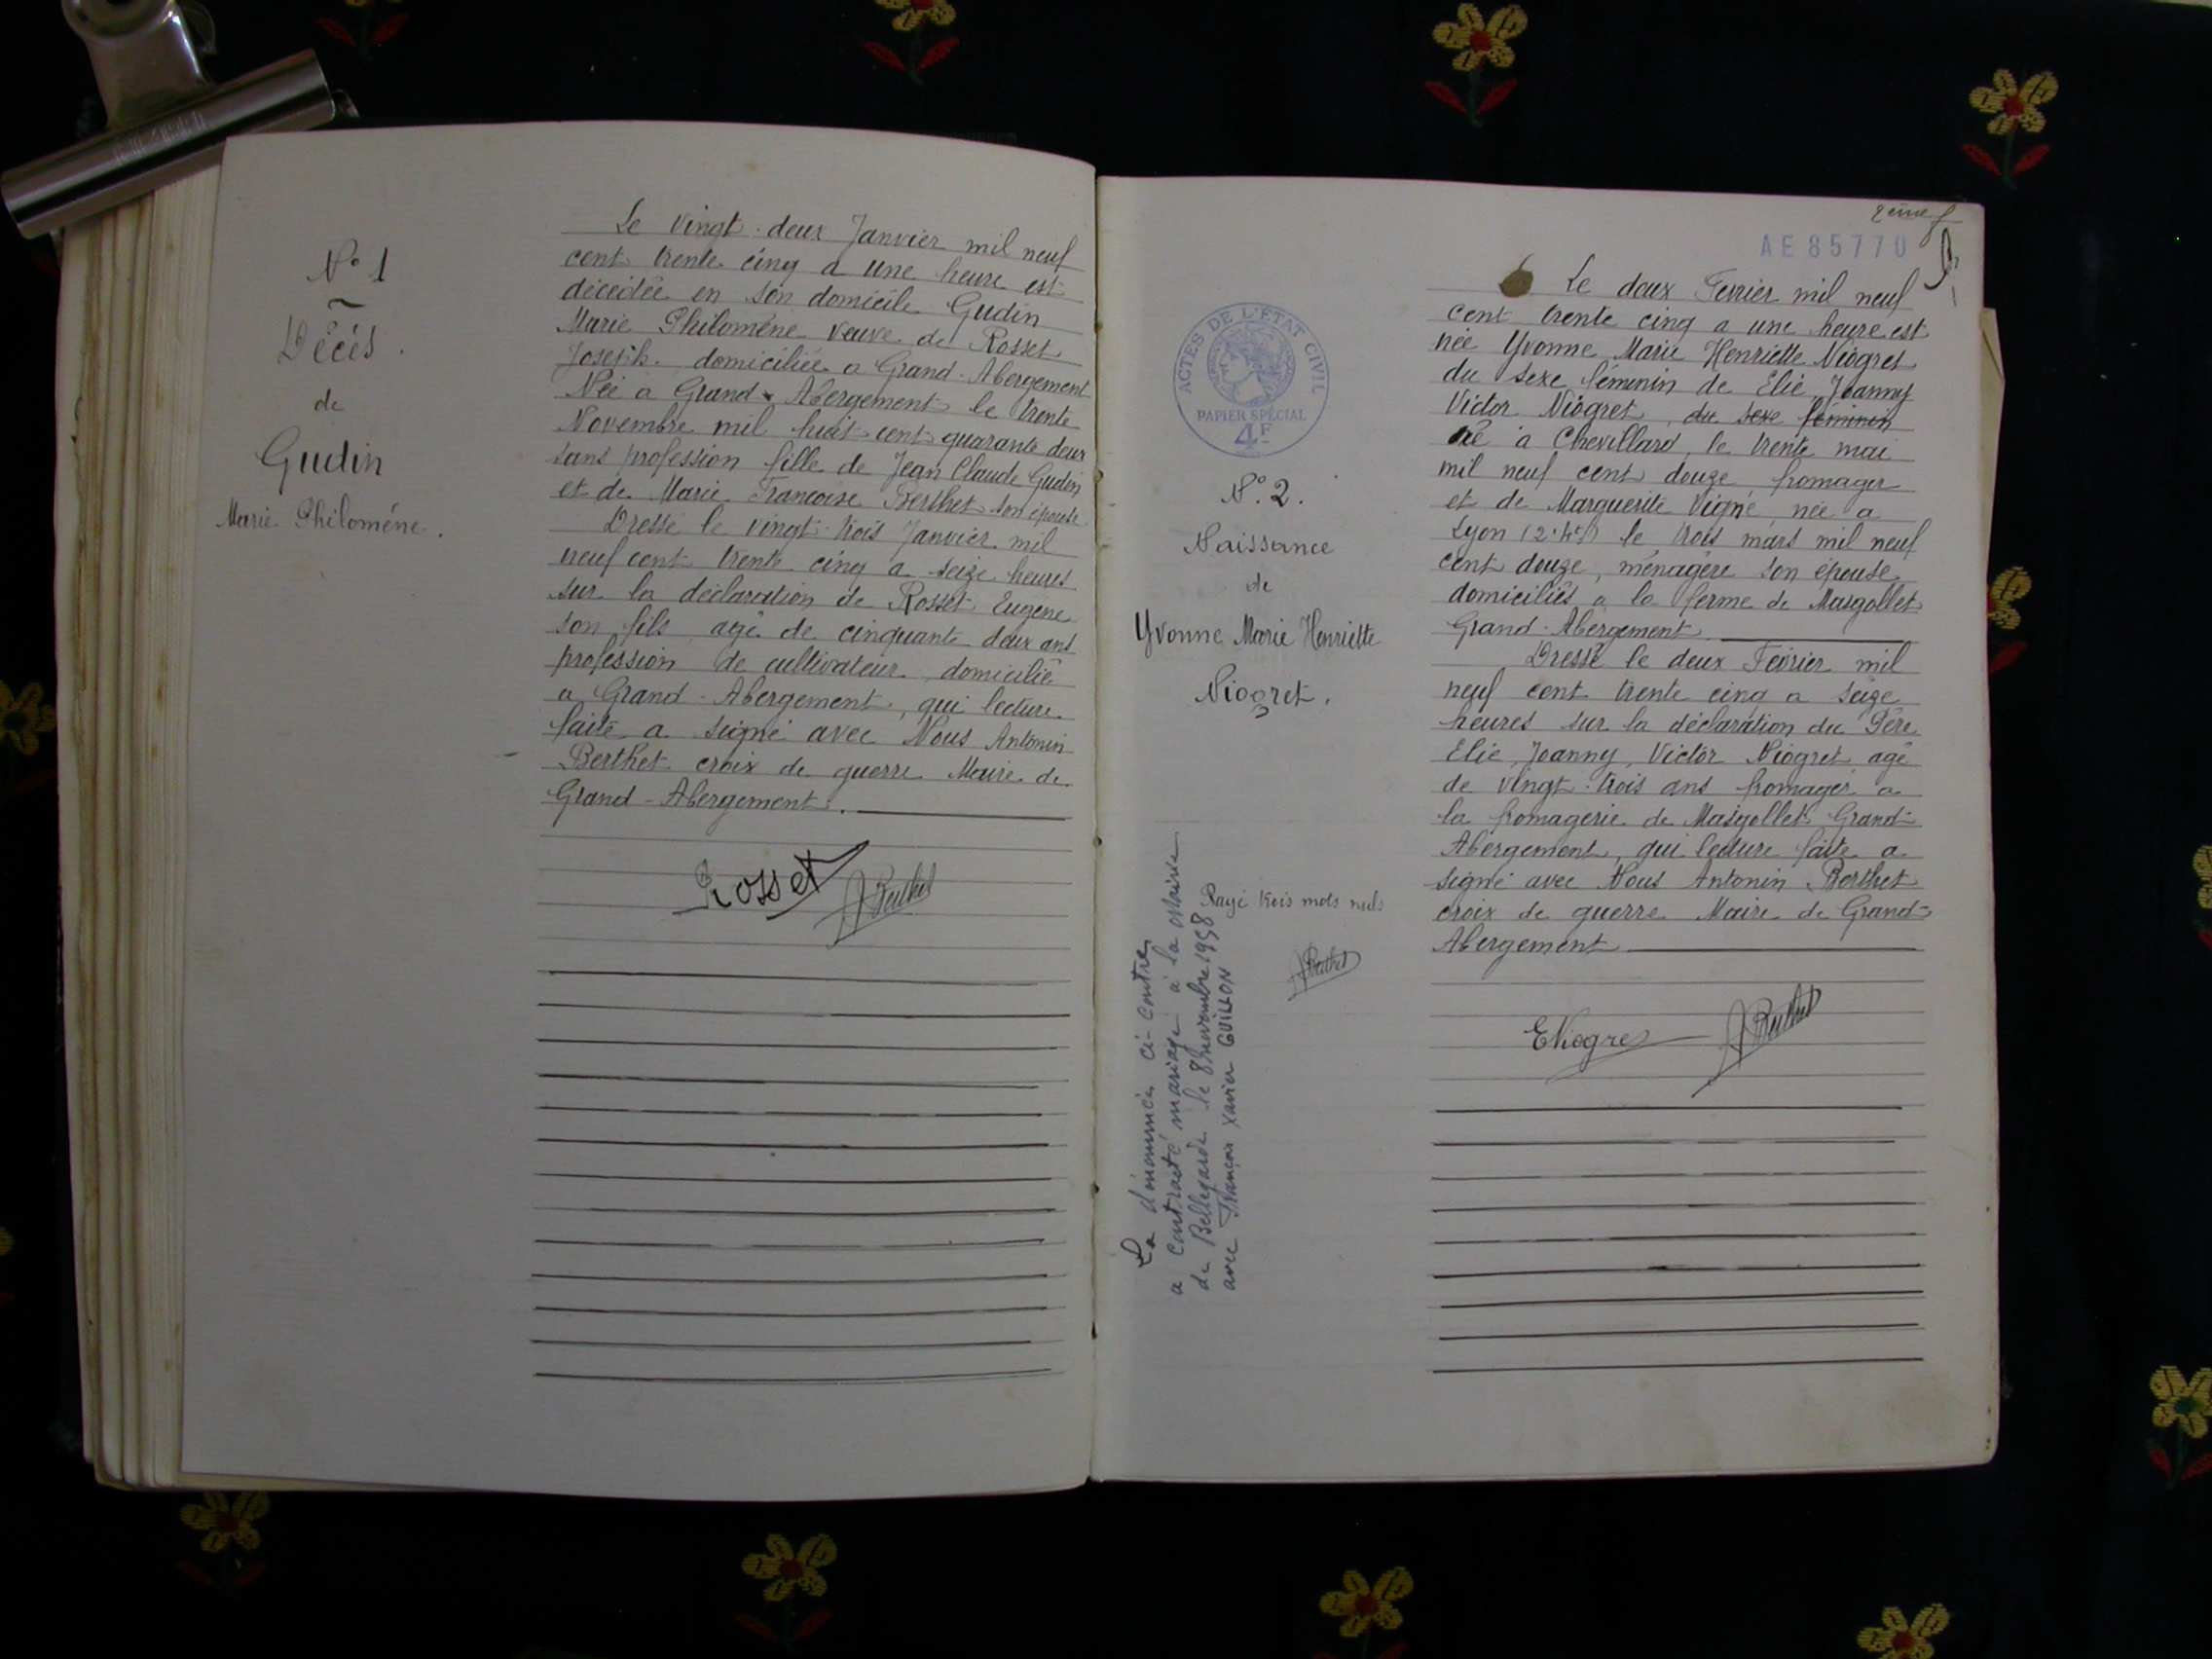 N° 1
Décés.
de
Gudin
Marie Philoméne.
Le vingt-deux Janvier mil neuf
cent trente cinq a une heure est
décédée en son domicile Gudin
Marie Philoméne veuve de Rosset
Joseph domiciliée a Grand-Abergement
Née a Grand Abergement le trente
Novembre mil huit cent quarante deux
sans profession fille de Jean Claude Gudin
et de Marie Francoise Berthet son épouse
Dressé le vingt-trois Janvier mil
neuf cent trente cinq a seize heures
sur la déclaration de Rosset Eugène
son fils agé de cinquante deux ans
profession de cultivateur domicilié
a Grand-Abergement, qui lecture
faite a signé avec Nous Antonin
Berthet croix de guerre Maire de
Grand-Abergement.
Rosset
ABerthet
2ème f
AE 85770
ACTES DE L'ÉTAT CIVIL
PAPIER SPÉCIAL
4F
N° 2.
Naissance
de
Yvonne Marie Henriette
Niogret.
Rayé trois mots nuls
ABerthet
La dénommée ci-contre
a contracté mariage à la Mairie
de Bellegarde le 8 novembre 1958
avec François Xavier GUILLON
Le deux Fevrier mil neuf
cent trente cinq a une heure est
née Yvonne Marie Henriette Niogret
du sexe féminin de Elie, Joanny
Victor Niogret, du sexe féminin
né a Chevillard, le trente mai
mil neuf cent douze fromager
et de Marguerite Vigne, née a
Lyon (2.) le trois mars mil neuf
cent douze, ménagère son épouse
domiciliés a la ferme de Masgollet
Grand-Abergement
Dressé le deux Février mil
neuf cent trente cinq a seize
heures sur la déclaration du Père
Elie, Joanny, Victor Niogret agé
de vingt-trois ans fromager a
la fromagerie de Masgollet Grand-
Abergement, qui lecture faite a
signé avec Nous Antonin Berthet
croix de guerre Maire de Grand-
Abergement
ENiogret
ABerthet